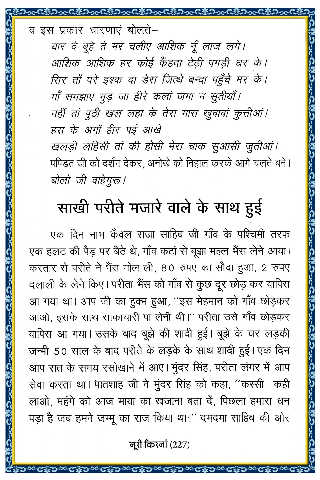 व इस प्रकार धारणाएं बोलते–
यार दे बूहे ते मर चलीए आशिक नूँ लाज लगे।
आशिक आशिक हर कोई कैंहदा टेढ़ी पगड़ी धर के।
सिर ताँ परे इश्क दा डेरा जित्थे बन्दा पहुँचे मर के।
माँ समझाए गुड़ जा हीरे कलां जमा न सुतीयाँ।
नहीं तां पुठी खल लहा के तेरा मास खुवावां कुत्तीआं।
हस के अगों हीर पई आखे
खलड़ी लाहेसी तां की होसी मेरा चाक सुआसी जुतीआं।
पण्डित जी को दर्शन देकर, अनोखे को निहाल करके आगे चलते बने।
बोलो जी वाहेगुरू।
साखी परीते मजारे वाले के साथ हुई
एक दिन नाभ कैंवल राजा साहिब जी गाँव के पश्चिमी तरफ
एक हलट की पैड़ पर बैठे थे, गाँव कटां से बूझा महल भैंस लेने आया।
करतार से परीते ने भैंस मोल ली, 80 रुपए का सौदा हुआ, 2 रुपए
दलाली के लेने किए। परीता भैंस को गाँव से कुछ दूर छोड़ कर वापिस
आ गया था। आप जी का हुक्म हुआ, ''इस मेहमान को गाँव छोड़कर
आओ, इसके साथ साकाचारी पा लेनी थी।'' परीता उसे गाँव छोड़कर
वापिस आ गया। उसके बाद बूझे की शादी हुई। बूझे के घर लड़की
जन्मी 50 साल के बाद परीते के लड़के के साथ शादी हुई। एक दिन
आप रात के समय रसोखाने में आए। मुंदर सिंह, परीता लंगर में आप
सेवा करता था। पातशाह जी ने मुंदर सिंह को कहा, ''कस्सी कही
लाओ, महंगे को आज माया का खजाना बता दें, पिछला हमारा धन
पड़ा है जब हमने जम्मू का राज किया था।'' दमदमा साहिब की ओर
नूरी किरणां (227)